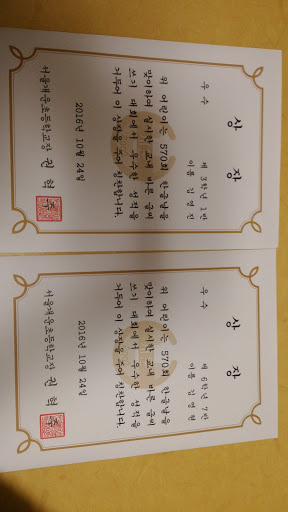 우수
상 장
제 3학년 1반
이름 김영진
위 어린이는 570회 한글날을
맞이하여 실시한 교내 바른 글씨
쓰기 대회에서 우수한 성적을
거두어 이 상장을 주어 칭찬합니다.
2016년 10월 24일
서울개운초등학교장 권 혁
우수
상 장
제 6학년 7반
이름 김영현
위 어린이는 570회 한글날을
맞이하여 실시한 교내 바른 글씨
쓰기 대회에서 우수한 성적을
거두어 이 상장을 주어 칭찬합니다.
2016년 10월 24일
서울개운초등학교장 권 혁